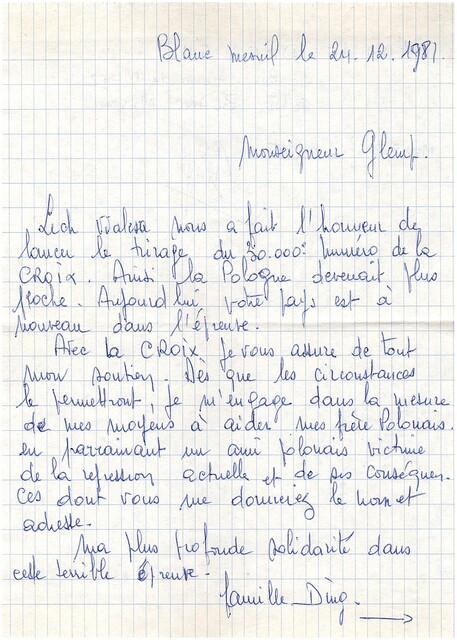 Blanc mesnil le 24.12.1981.
Monseigneur Glemp.
Lech Walesa nous a fait l'honneur de
lancer le tirage du 30.000e numéro de la
CROIX. Ainsi la Pologne devenait plus
proche. Aujourd'hui votre pays est à
nouveau dans l'épreuve.
Avec la CROIX, je vous assure de tout
mon soutien. Dès que les circonstances
le permettront, je m'engage dans la mesure
de mes moyens à aider mes frère Polonais.
en parrainant un ami polonais victime
de la répression actuelle et de ses conséquen-
ces dont vous me donneriez le nom et
adresse.
Ma plus profonde solidarité dans
cette terrible épreuve.
famille